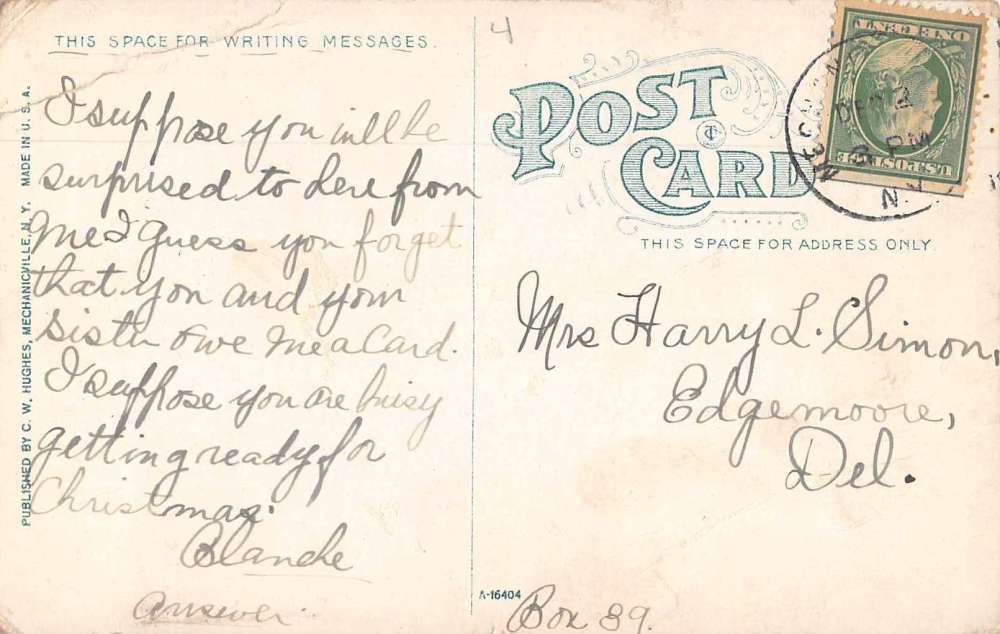 THIS SPACE FOR WRITING MESSAGES.
I suppose you will be
surprised to here from
me I guess you forget
that you and your
sister owe me a card.
I suppose you are busy
getting ready for
Christmas.
Blanche
answer.
PUBLISHED BY C. W. HUGHES, MECHANICVILLE, N.Y. MADE IN U.S.A.
4
POST
CARD
THIS SPACE FOR ADDRESS ONLY.
DEC
3 PM
N.Y.
U.S. POSTAGE
Mrs Harry L. Simon,
Edgemoore,
Del.
A-16404
Box 39.